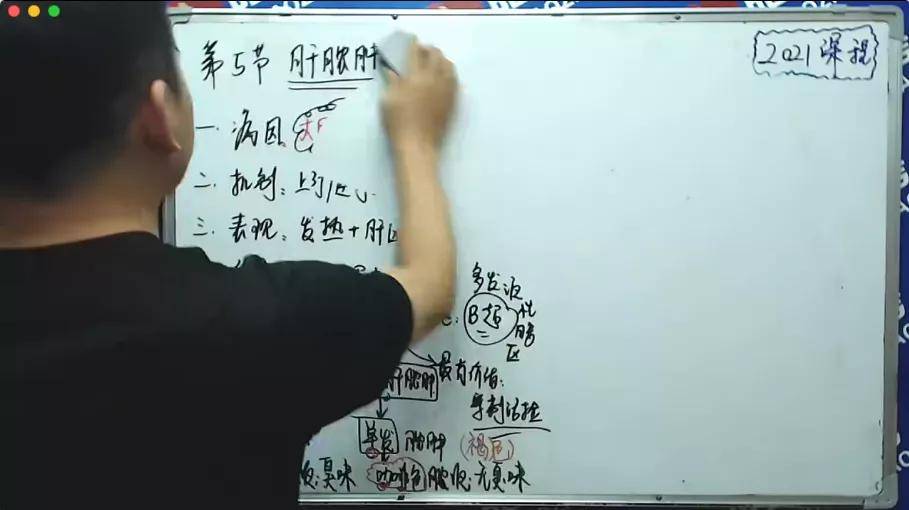 2021课程
第5节 肝脓肿
一、病因
二、机制：上行
三、表现：发热+肝区
多发液化暗区
B超
肝脓肿
最有价值：
穿刺活检
单发 脓肿 (褐色)
臭味 咖啡色 脓液：无臭味